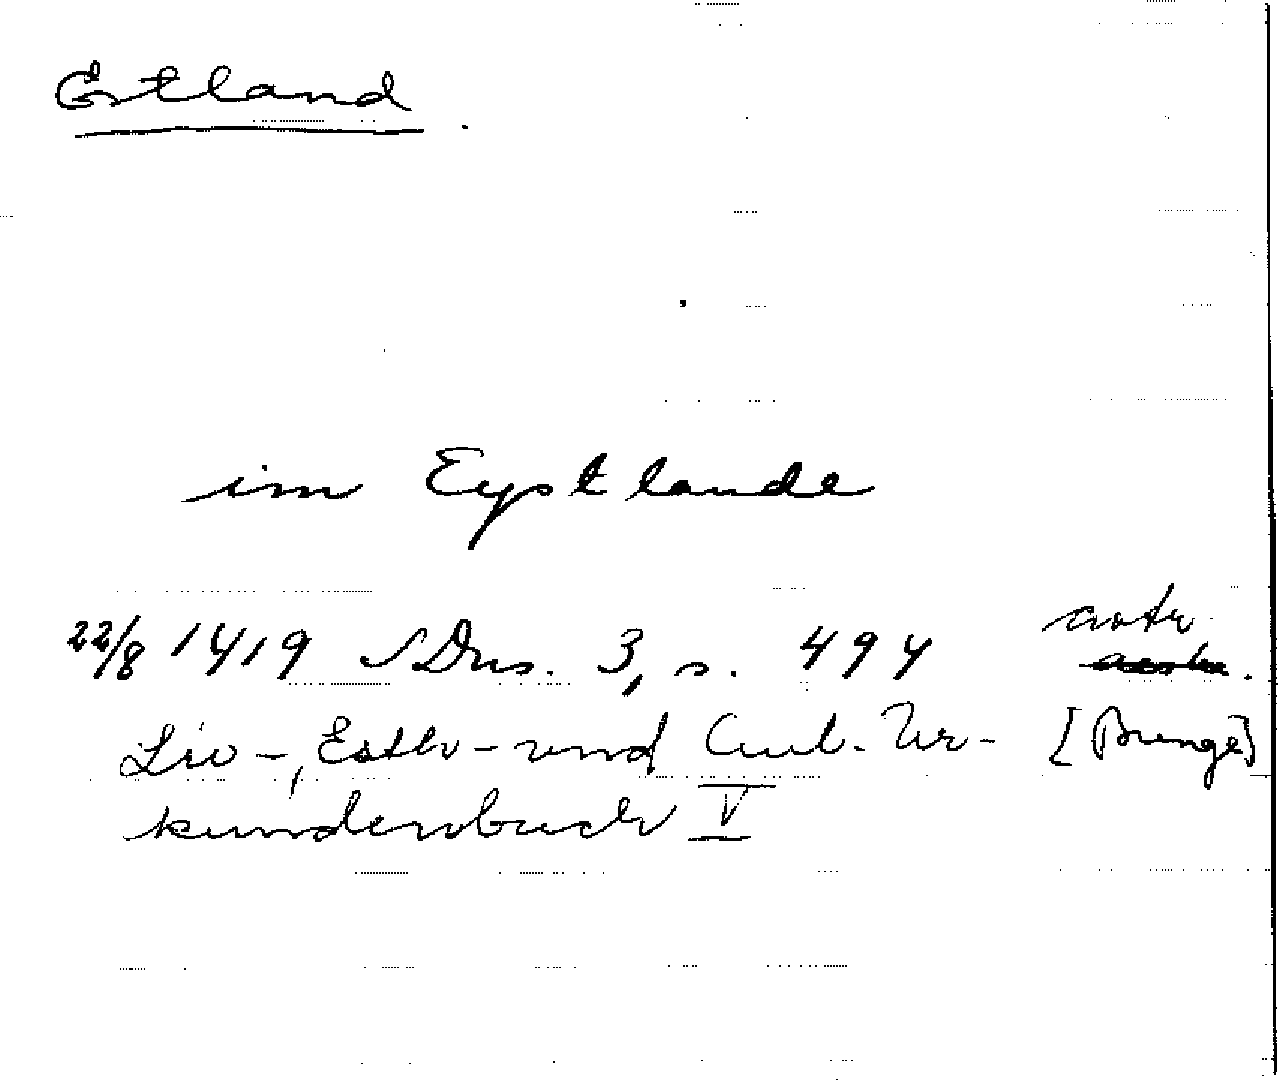 Estland
im Eystlande
22/8 1419 SDns. 3, s. 494 avskr.
Liv-, Esth- und Curl. Ur- [Bunge]
kundenbuch V